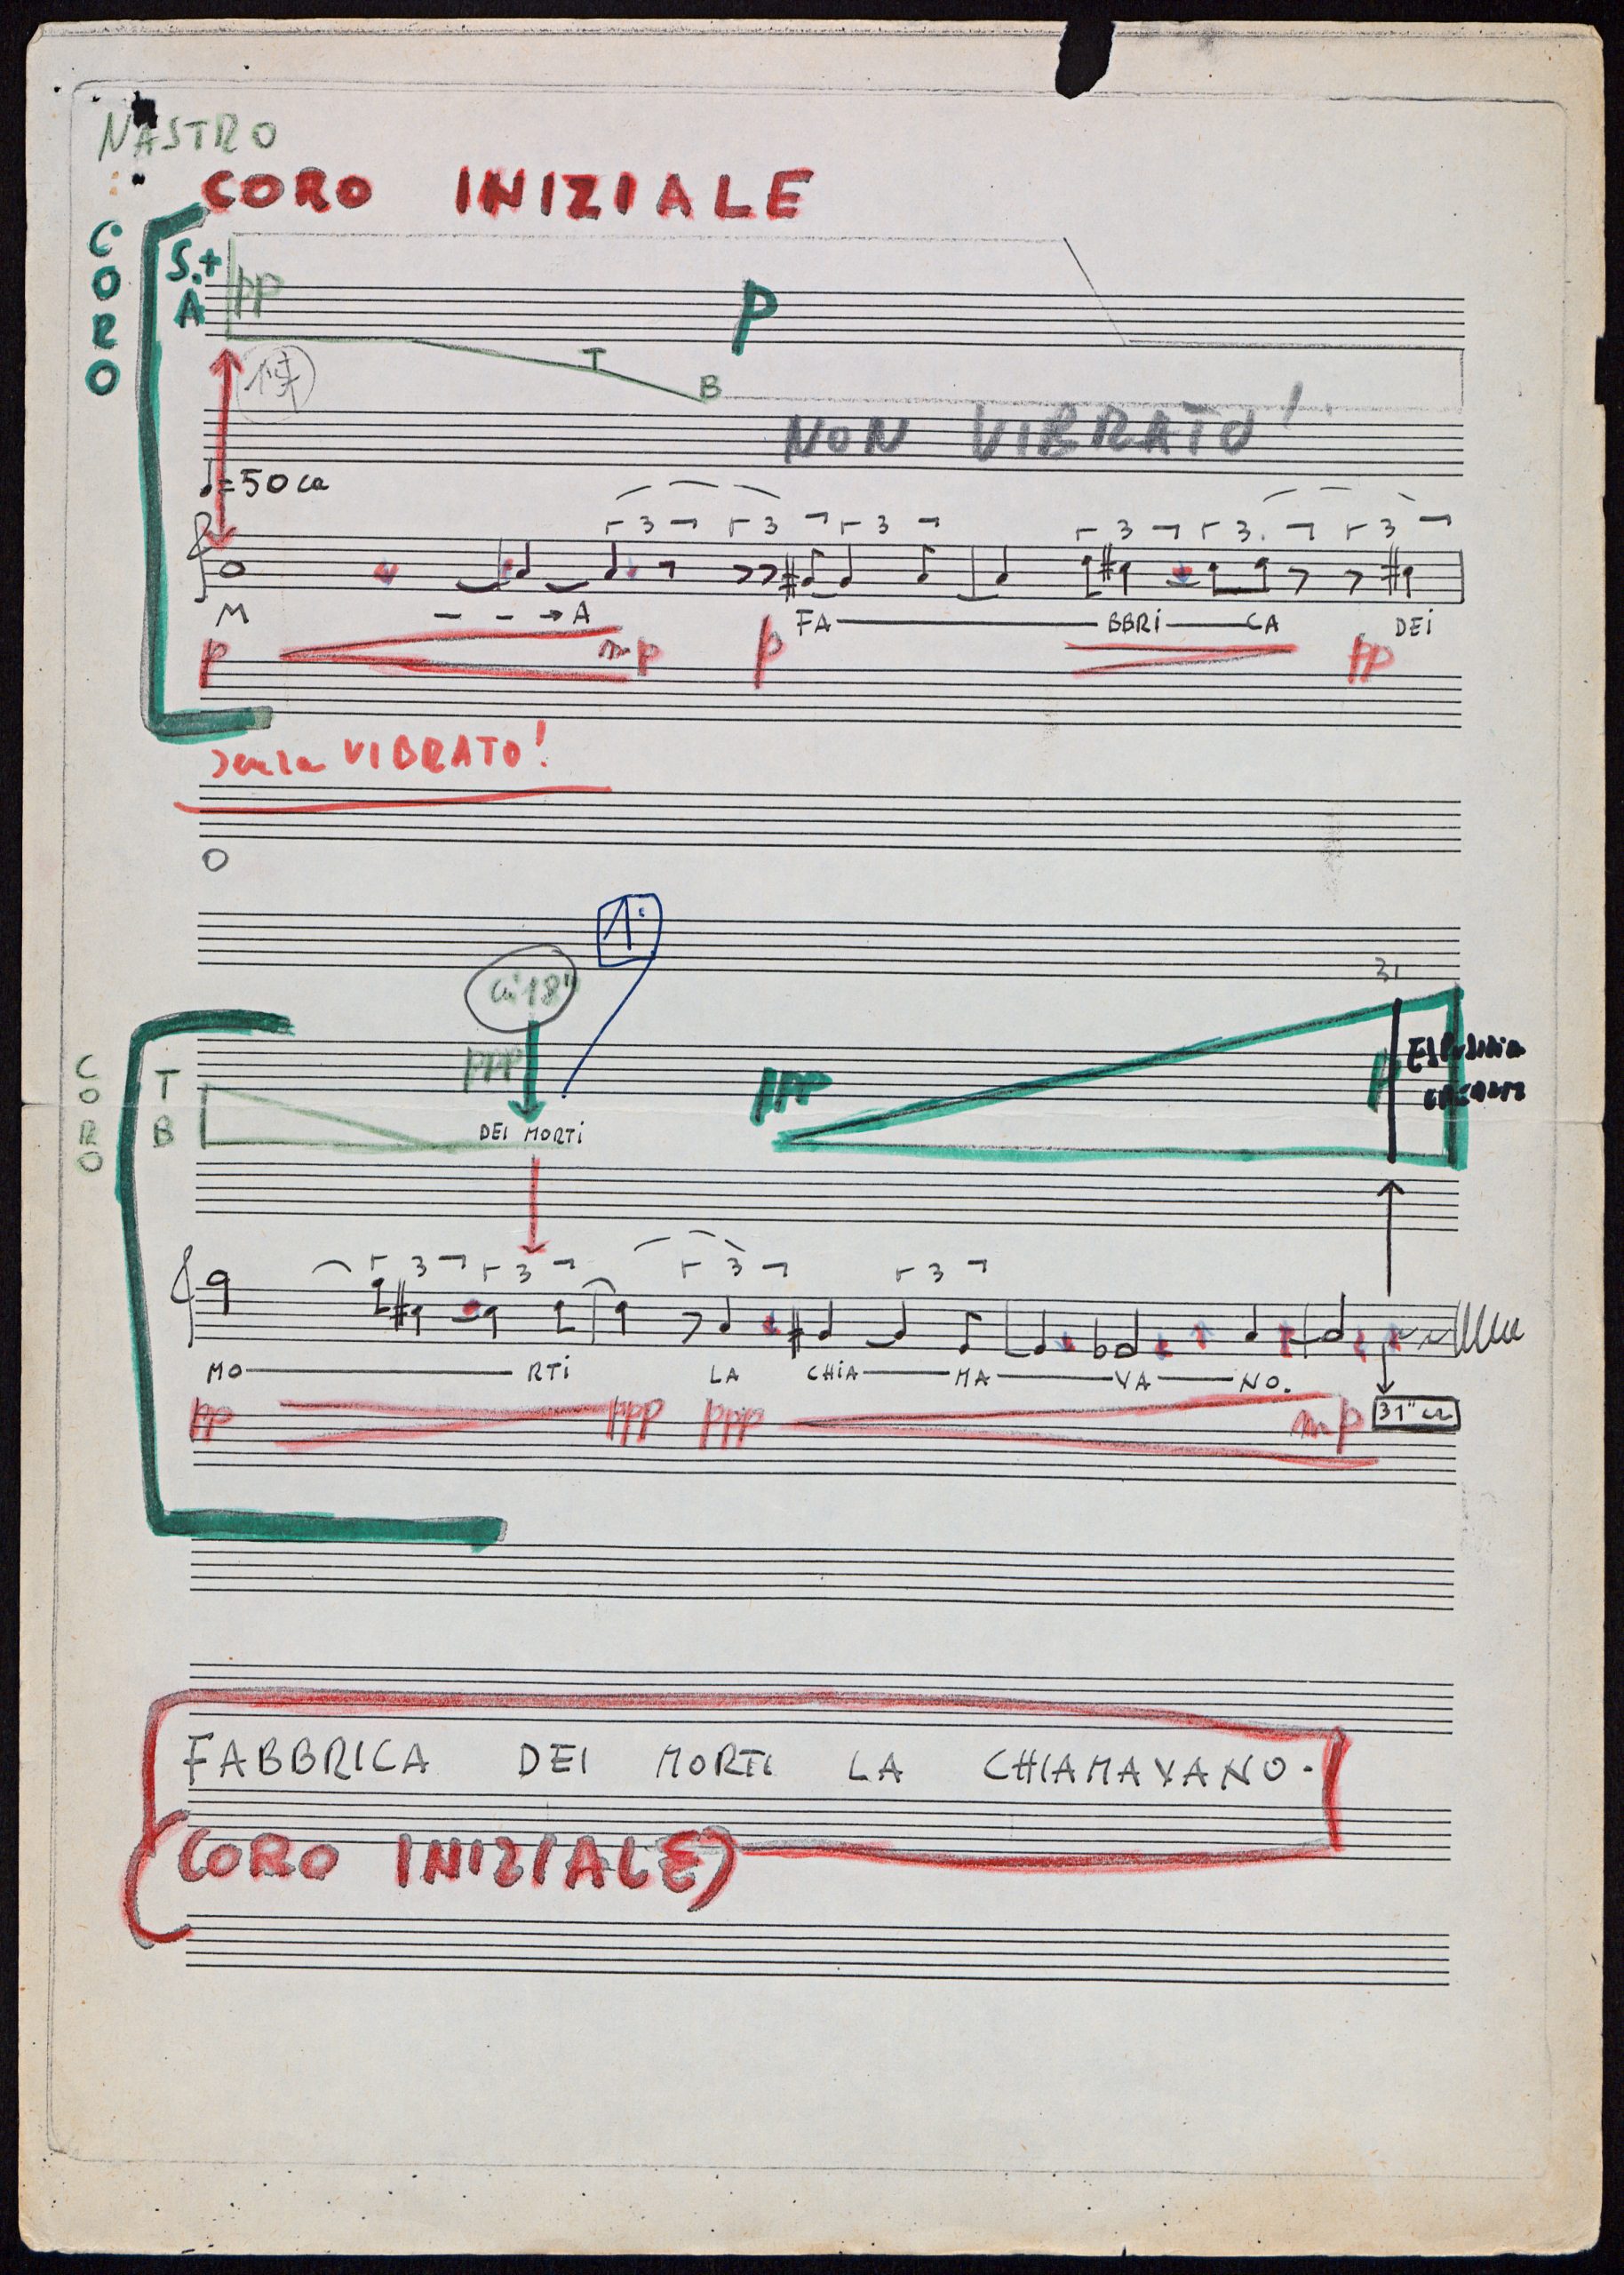 NASTRO
CORO INIZIALE
CORO
S.+
A
pp
P
T
B
NON VIBRATO!
=50 ca
3 3 3 3 3. 3
M - - → A FA BBRi CA DEi
p mp p pp
senza VIBRATO!
1°
18"
31
CORO
T
B
ppp
ppp
DEI MORTi
3 3 3 3
MO RTi LA CHiA MA VA NO.
pp ppp ppp mp 31" ca
FABBRICA DEI MORTI LA CHIAMAVANO.
(CORO INIZIALE)